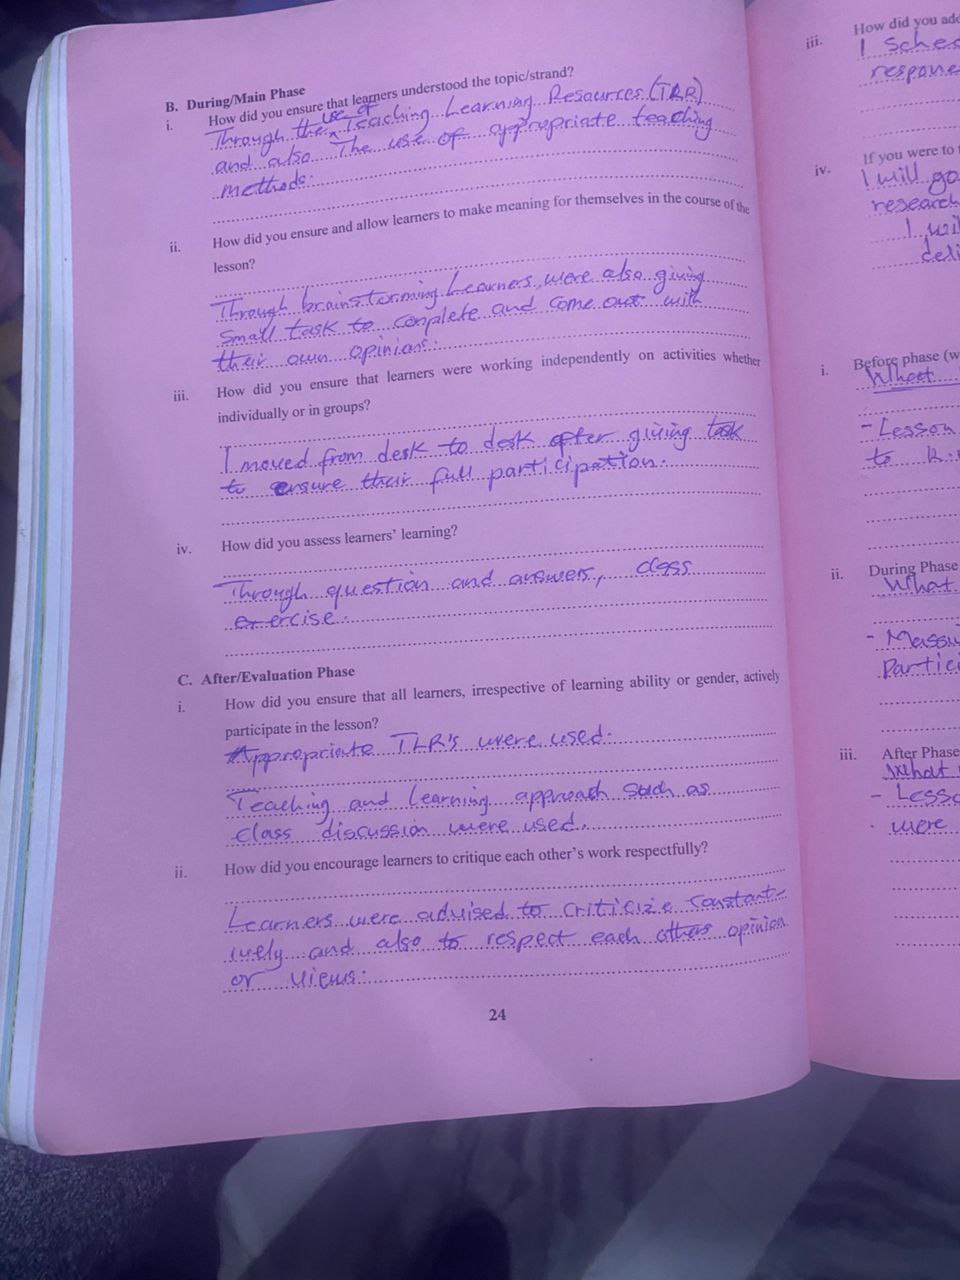 B. During/Main Phase
i. How did you ensure that learners understood the topic/strand?
Through the use of Teaching Learning Resources (TLR)
and also The use of appropriate teaching
methods.
ii. How did you ensure and allow learners to make meaning for themselves in the course of the
lesson?
Through brainstorming. Learners were also giving
small task to complete and come out with
their own opinions.
iii. How did you ensure that learners were working independently on activities whether
individually or in groups?
I moved from desk to desk after giving task
to ensure their full participation.
iv. How did you assess learners' learning?
Through question and answers, class
exercise.
C. After/Evaluation Phase
i. How did you ensure that all learners, irrespective of learning ability or gender, actively
participate in the lesson?
Appropriate TLR's were used.
Teaching and learning approach such as
class discussion were used.
ii. How did you encourage learners to critique each other's work respectfully?
Learners were advised to criticize constant-
ively and also to respect each others opinion
or views.
24
iii. How did you
I
iv. If you were to
I will go
research
I
i. Before phase
What
- Lesson
to
ii. During Phase
What
-
iii. After Phase
What
-
were